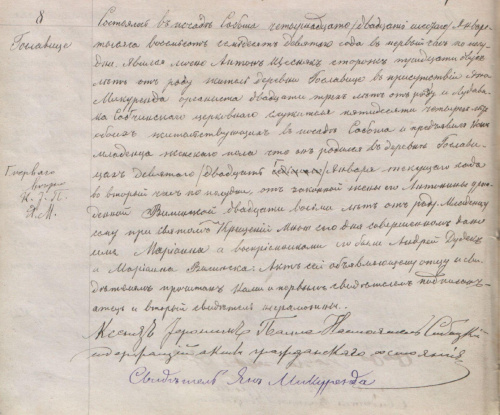 8
Гославице
Состоялось въ посадѣ Собота четырнадцатаго /двадцать шестаго/ Января
тысяча восемьсотъ семьдесятъ девятаго года въ первый часъ по полу
дни. Явился лично Антонъ сторожъ тридцати двухъ
лѣтъ отъ роду житель деревни Гославице въ присутствіи Яна
Микуренда органиста двадцати трехъ лѣтъ отъ роду и
Собчинскаго церковнаго служителя пятидесяти четырехъ лѣтъ
обоихъ жительствующихъ въ посадѣ Собота и предъявилъ Намъ
младенца женскаго пола что онъ родился въ деревнѣ Гослави
цахъ девятаго /двадцать Января текущаго года
въ второй часъ по полудни, отъ законной жены его Антонины урож
денной двадцати восьми лѣтъ отъ роду. Младенцу
сему при святомъ Крещеніи Мною сего дня совершенномъ дано
имя Маріанна и воспріемниками его были Андрей Дудекъ
и Маріанна Актъ сей объявляющему отцу и сви
дѣтелямъ прочитанъ Нами и первымъ свидѣтелемъ подписанъ
отецъ и второй свидѣтель неграмотны.
Ксендзъ Настоятель Соботскій
содержащій акты гражданскаго состоянія
Свидѣтель Янъ Микуренда